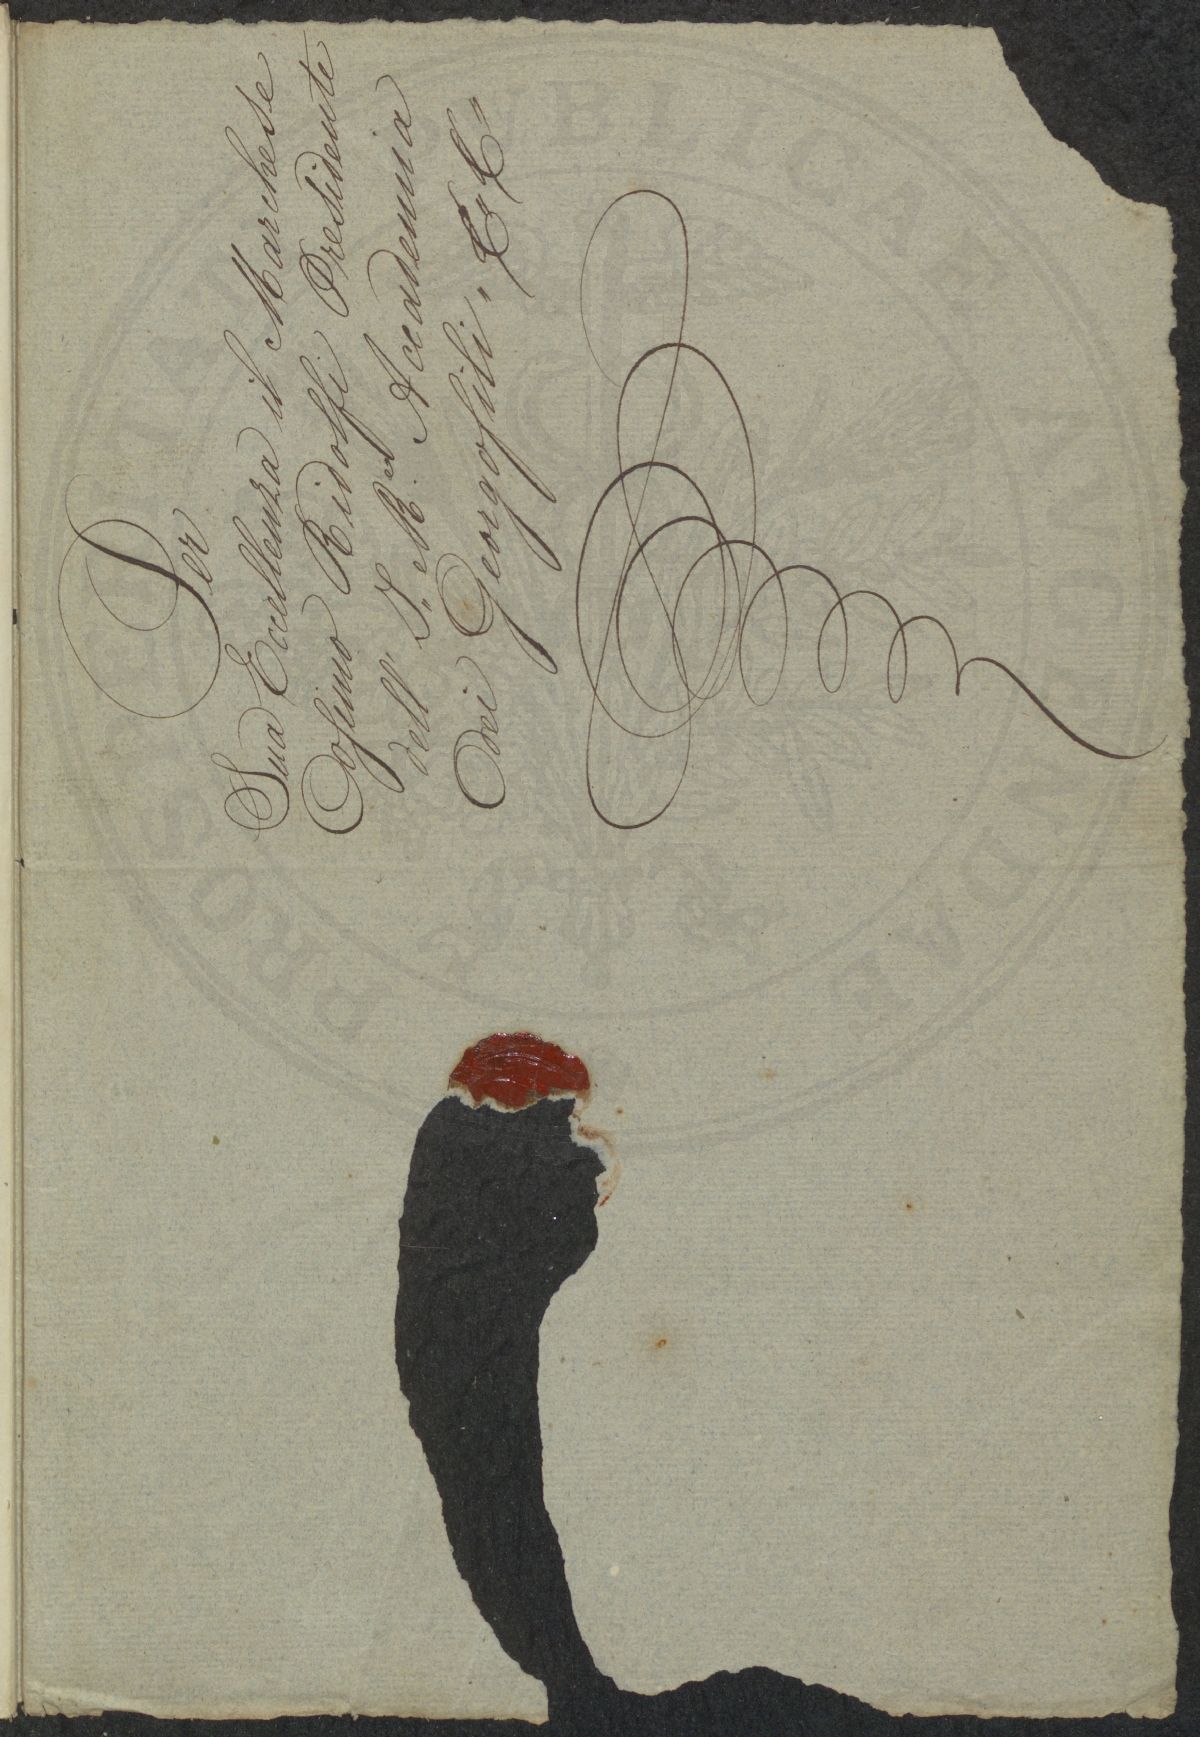 Per
Sua Eccellenza il Marchese
Cosimo Ridolfi Presidente
dell' I. e R. Accademia
dei Georgofili. &c &c
PROSPERITATI PUBLICAE AUGENDAE